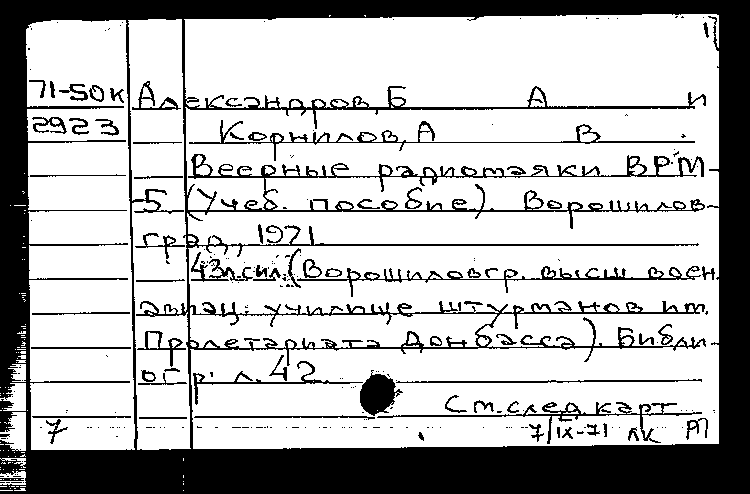 1
71-50к Александров, Б А и
2923 Корнилов, А В
Веерные радиомаяки ВРМ-
-5. (Учеб. пособие). Ворошилов-
град, 1971.
43л.сил. (Ворошиловгр. высш. воен.
авиац. училище штурманов им.
Пролетариата Донбасса). Библи-
огр: л. 42.
См. след. карт.
7 7/IX-71 ЛК РП